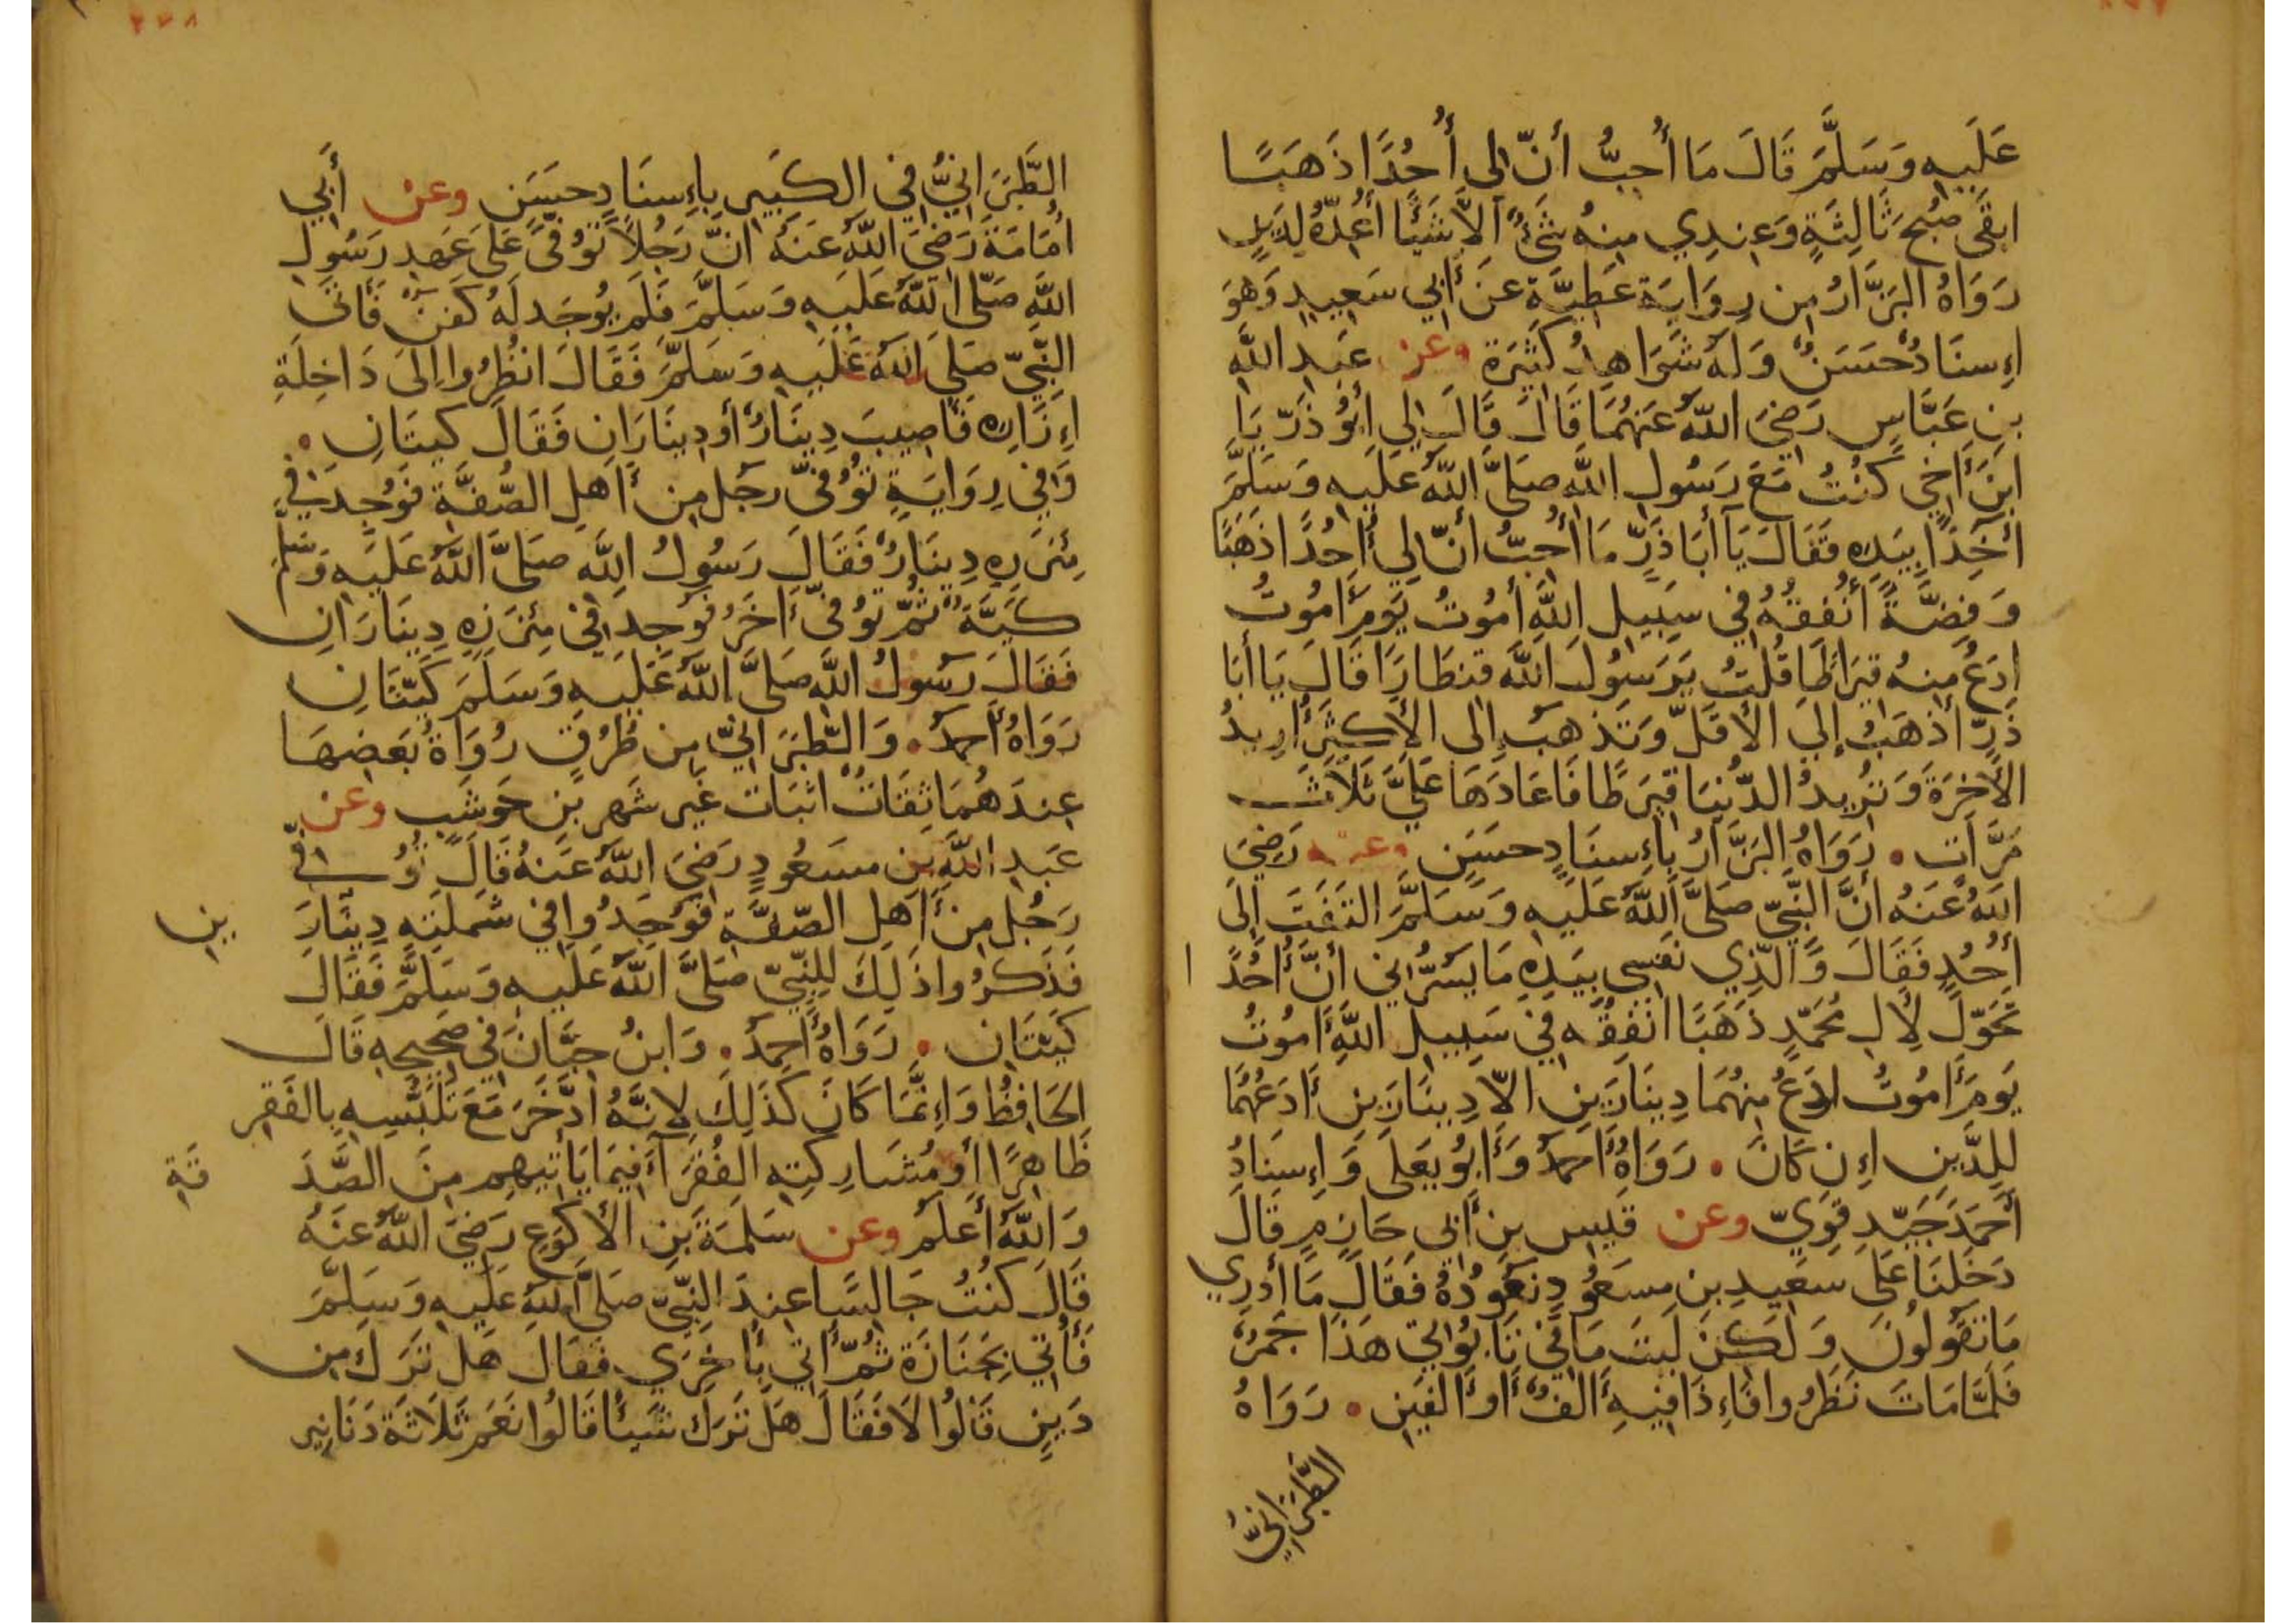 عَلَيهِ وَسَلَّمَ قَالَ مَا أُحِبُّ أَنّ لِى أُحُدًا ذَهَبًا
ابقَى صُبحَ ثَالِثَةٍ وَعِندِي مِنهُ شَئٌ اَلاَّ شَيًا أُعُدّهُ لِدَينٍ
رَوَاهُ البَزَّارُ مِن رِوَايَةِ عَطِيَّةِ عَن أَبِي سَعِيدٍ وَهوَ
اِسنَادٌ حَسَنٌ وَلَهُ شَوَاهِدُ كَثِيرَة وعن عَبدِ اللَّه
بنِ عَبَّاسٍ رَضِيَ اللّهُ عَنهُمَا قَالَ قَالَ لِي اَبُو ذَرّ يَا
ابنَ أَخِي كُنتُ مَعَ رَسُولِ اللَّهِ صَلىَّ اللّهُ عَلَيهِ وَسَلَّمَ
آخِذًا بِيَدِهِ فَقَالَ يَا أَبَا ذَرٍّ مَا أُحِبُّ أَنّ لِي أُحُدًا ذَهَبًا
وَفِضَّةً أُنفِقُهُ فِي سَبِيلِ اللَّهِ أمُوتُ يَومَ أَمُوتُ
اَدَعُ مِنهُ قِيرَاطًا قُلتُ يَرَسُولَ اللَّه قِنطَارًا قَالَ يَا أَبَا
ذَرٍّ أَذهَبُ إِلَى الأَقَلّ وَتَذهَبُ إِلى الأَكثَرِ أُرِيدُ
الأَخِرَةَ وَتُرِيدُ الدُّنيَا قِيرَطًا فَاعَادَهَا عَلَيَّ ثَلاَثَ
مَرَّاتٍ . رَوَاهُ البَزَّارُ بِاِسنَادٍ حسَنٍ وعنه رَضِيَ
اللّهُ عَنهُ اَنَّ النَّبِيّ صَلىَّ اللَّهُ عَلَيهِ وَسَلَّمَ التَفَتَ إِلى
أُحُدٍ فَقَالَ وَالّذِي نَفسِي بِيَدِهِ مَا يَسُرُّنِي أَنَّ أُحُدًا
تَحَوّلَ لِالِ مُحَمّدٍ ذَهَبًا انفِقُهُ فِي سَبِيلِ اللَّهِ أَمُوتُ
يَومَ أَمُوتُ ادَعُ مِنهُمَا دِينَارَينِ الاّ دِينَارَينِ أَدَعُهُمَا
لِلدَّينِ اِن كَانَ . رَوَاهُ أَحمدُ وَأَبُو يَعلَى وَاِسنَادُ
أَحمَدَ جَيّدٍ قَوِيّ وعن قَيسِ بنِ أَبِى حَازِمٍ قَالَ
دَخَلنَا عَلَى سَعِيدِ بنِ مسعُودٍ نَعُودُهُ فَقَالَ مَا أَدرِي
مَا تَقُولُونَ وَلَكِن لَيتَ مَا فِي تَابُوتِي هَذَا جَمرٌ
فَلَمَّا مَاتَ نَظَرُوا فَاِذَا فِيهِ أَلفٌ أَو أَلفَينِ . رَوَاهُ
الطَّبَرَانِيُّ
الطَّبَرَانِيُّ فِي الكَبِيرِ بِاِسنَادٍ حسَنٍ وعن أَبِي
أُمَامَةَ رَضِيَ اللّهُ عَنهُ اَنَّ رَجُلاً تُوُفِّيَ عَلَى عَهدِ رَسُولِ
اللَّهِ صَلّى اللّهُ عَلَيهِ وَسَلَّمَ فَلَم يُوجَد لَهُ كَفَنٌ فَاتَى
النَّبِيّ صَلىَ اللّهُ عَلَيهِ وَسَلمَّ فَقَالَ انظُرُوا اِلىَ دَاخِلَةِ
اِزَارِهِ فَأُصِيبَ دِينَارٌ أَو دِينَارَانِ فَقَالَ كَيتَانِ .
وَفِي رِوَايَةٍ تُوُفّيَ رجَل مِن أَهلِ الصُّفَّةِ فَوُجِدَ فِي
مِئزَرِهِ دِينَارٌ فَقَالَ رَسُولُ اللَّهِ صَلىَّ اللَّهُ عَلَيهِ وَسلم
كَيَّةٌ ثُمّ تُوُفّيَ أَخَرُ فَوُجِدَ فِي مِئزَرِهِ دِينَارَانِ
فَقَالَ رَسُولُ اللَّهِ صَلىَّ اللَّهُ عَلَيهِ وَسَلمَ كَيَّتَانِ
رَوَاهُ أَحمدُ . وَالطّبَرَانِيّ مِن طُرُقٍ رُوَاةُ بَعَضِهَا
عِندَهُمَا ثِقَاتٌ اثبَات غَيرِ شَهرِ بنِ حَوشَبٍ وعن
عَبدِ اللَّهِ بنِ مسعُودٍ رَضِيَ اللَّهُ عَنهُ قَالَ تُوُفّيَ
رَجُل مِن أَهلِ الصّفَّةِ فَوَجَدُوا فِي شَملَتِهِ دِينَارَ ين
فَذَكَرُوا ذَلِكَ لِلنَّبِيّ صَلىَّ اللّهُ عَلَيهِ وَسَلَّمَ فَقَالَ
كَيَّتَانِ . رَوَاهُ أَحمَدُ . وَابنُ حِبَّانَ فِي صَحِيحِهِ قَالَ
الحَافِظُ وَاِنَّمَا كَانَ كَذَلِكَ لِانَّهُ ادَّخَرَ مَعَ تَلَبُّسِهِ بِالفَقرِ
ظَاهِرًا أَو مُشَارِكتِهِ الفُقَرَآءَ فِيمَا يَأتِيهِم مِنَ الصَّدَ قَةِ
وَاللّهُ أَعلَم وعن سَلَمَةَ بنِ الأَكوَعِ رَضِيَ اللّهُ عَنهُ
قَالَ كُنتُ جَالسًا عِندَ النَّبِيّ صَلىَّ اللَّهُ عَلَيهِ وَسَلَّمَ
فَأُتِي بِجَنَازَةٍ ثُمّ أُتِي بِأُخرَي فَقَالَ هَل تَرَكَ مِن
دَينٍ قَالُوا لاَ فَقَالَ هَل تَرَكَ شَيئًا قَالُوا نَعَم ثَلاَثَة دَنَانِيرِ